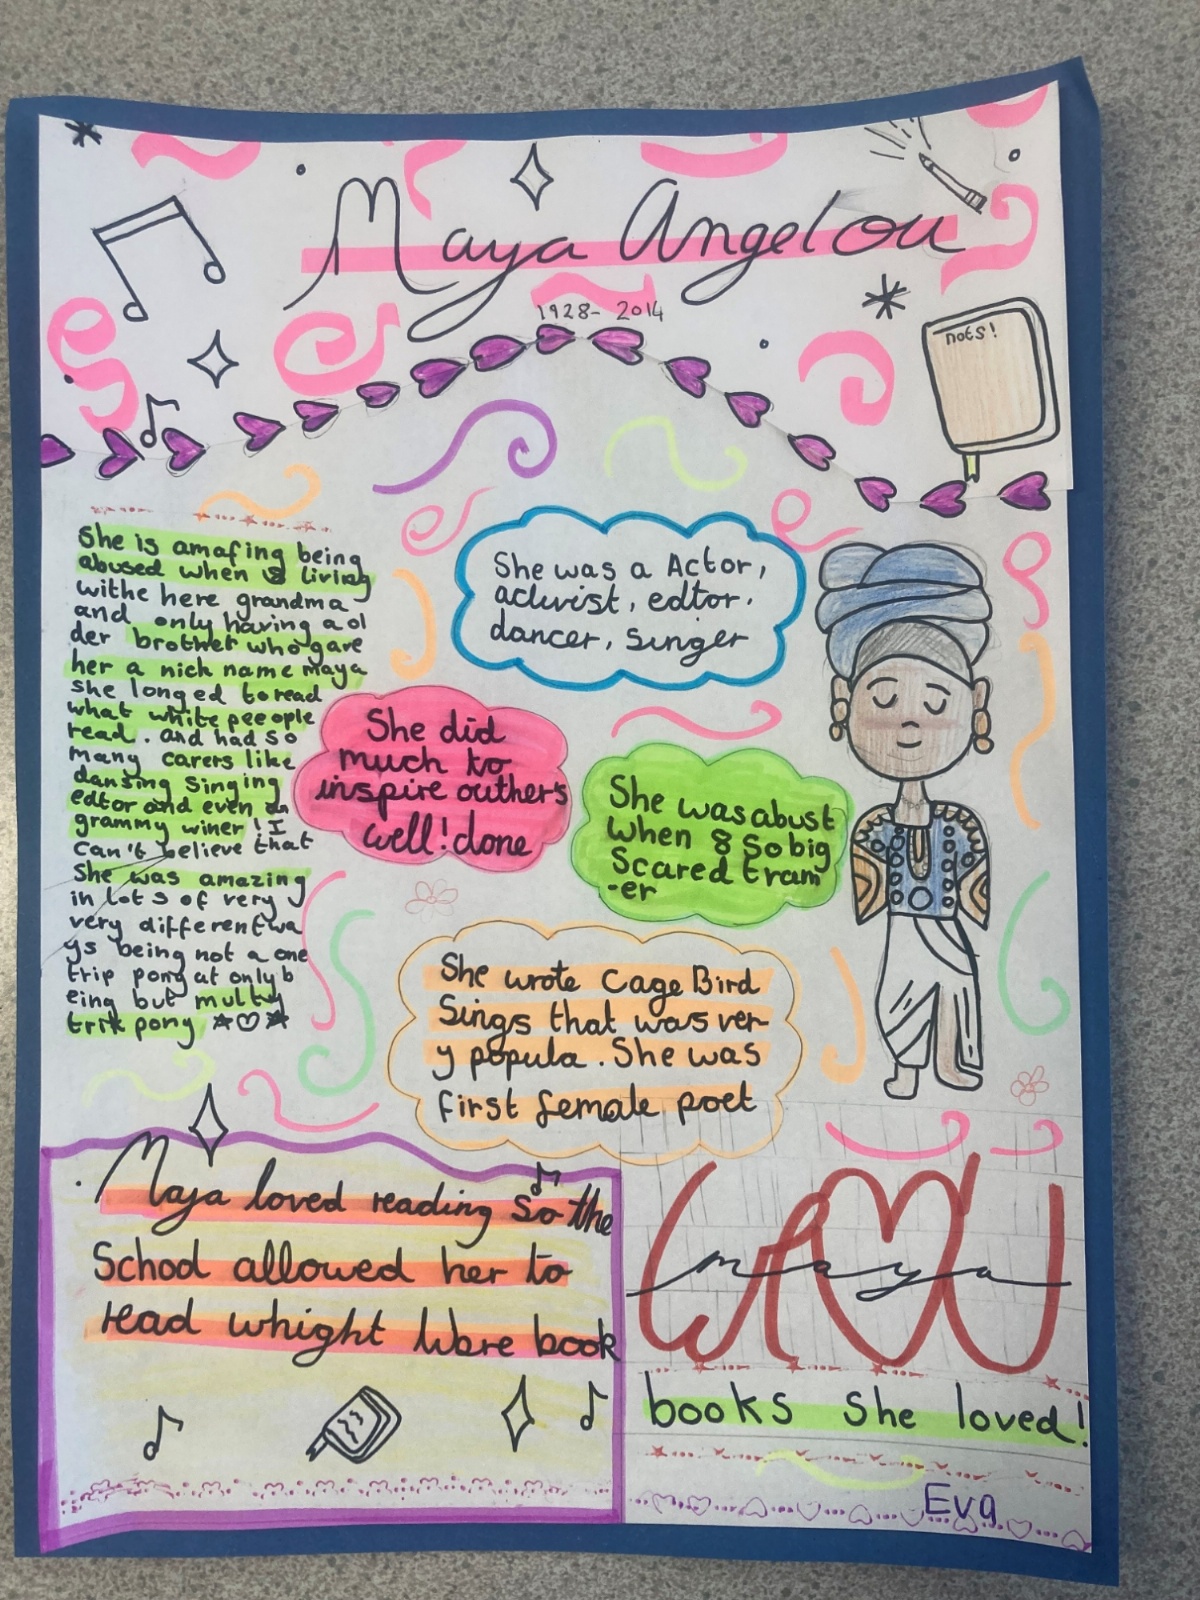 Maya Angelou
1928- 2014
nots!
She is amafing being
abused when 8 living
withe here grandma
and only having a ol
der brother who gave
her a nick name maya
she longed to read
what white peeople
read. and had so
many carers like
dansing singing
edtor and even an
grammy winer! I
can't believe that
She was amazing
in lots of very
very different wa
ys being not a one
trip pony at only b
eing but multy
trik pony
She was a Actor,
activist, edtor.
dancer, singer
She did
much to
inspire outher's
well! done
She was abust
when 8 so big
Scared tram
-er
She wrote Cage Bird
Sings that was ver-
y popula. She was
first female poet
Maya loved reading so the
School allowed her to
read whight Ware book
WOW
maya
books she loved!
Eva